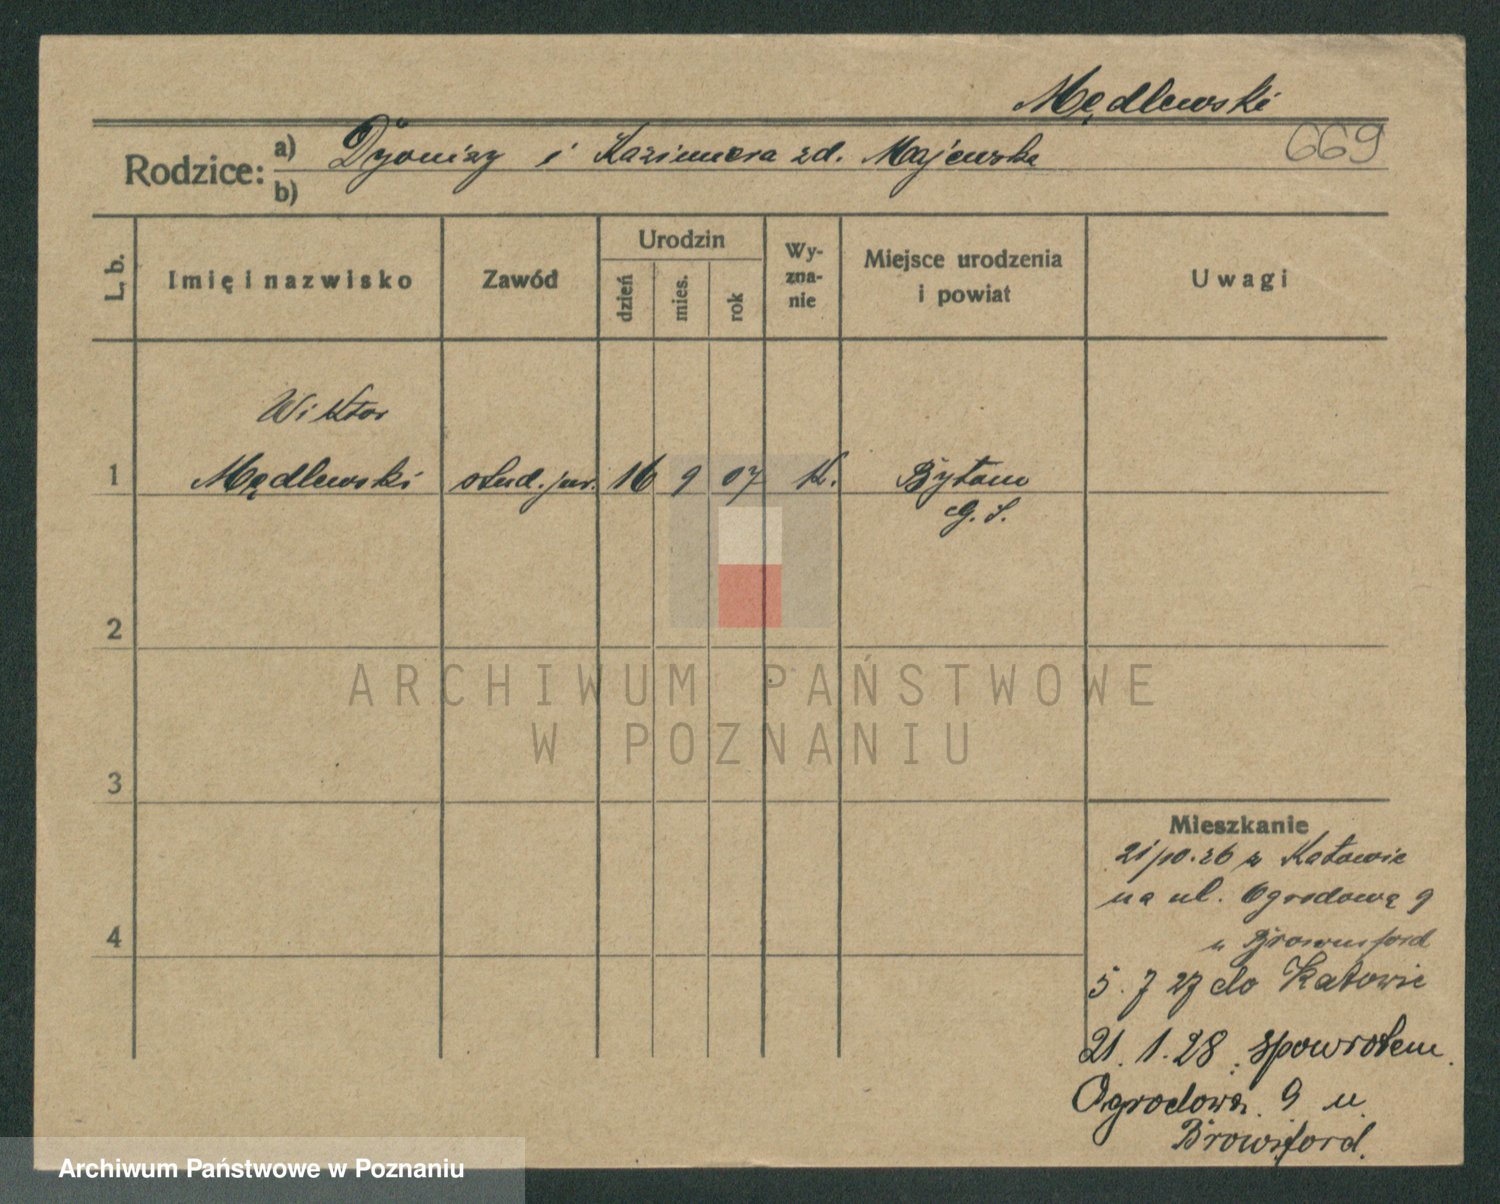 Mędlewski
669
Rodzice:
a) Dyonizy i Kazimiera zd. Majewska
b)
L. b.
Imię i nazwisko
Zawód
Urodzin
dzień
mies.
rok
Wy-
zna-
nie
Miejsce urodzenia
i powiat
Uwagi
Wiktor
1 Mędlewski stud. jur. 16 9 07 K. Bytom
G. S.
2
ARCHIWUM PAŃSTWOWE
W POZNANIU
3
Mieszkanie
21/10.26 z Katowic
na ul. Ogrodową 9
4
u Brownsford
5. 7 27 do Katowic
21. 1. 28. spowrotem.
Ogrodowa. 9 u.
Browsford.
Archiwum Państwowe w Poznaniu